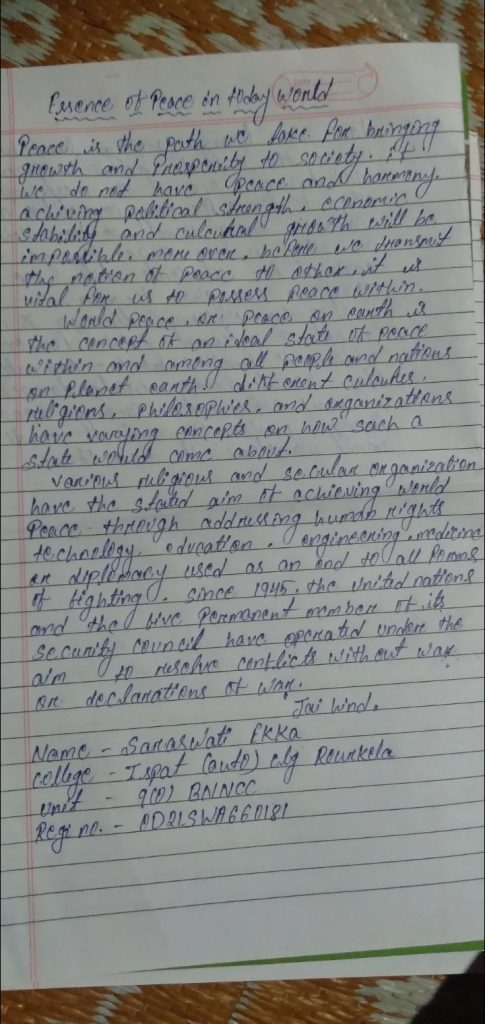 Essence of Peace in today World
Peace is the path we take for bringing
growth and Prosperity to society. if
we do not have Peace and harmony.
achiving political strength, economic
stability and culcutral growth will be
impossible. more over, before we transmit
the notion of peace to other, it is
vital for us to possess peace within.
World peace, or peace on earth is
the concept of an ideal state of peace
within and among all people and nations
on Planet earth. different culcutes,
religions, philosophies, and organizations
have varying concepts on how such a
state would come about.
Various religious and secular organization
have the stated aim of achieving world
Peace through addressing human rights
technology, education, engineering, medicine
or diplomacy used as an end to all forms
of fighting. since 1945, the united nations
and the five permanent member of its
security council have operated under the
aim to resolve conflicts without war
or declarations of war.
Jai hind.
Name - Saraswati Ekka
college - Ispat (auto) clg Rourkela
unit - 9(O) BNNCC
Regi no. - OD21SWA660181